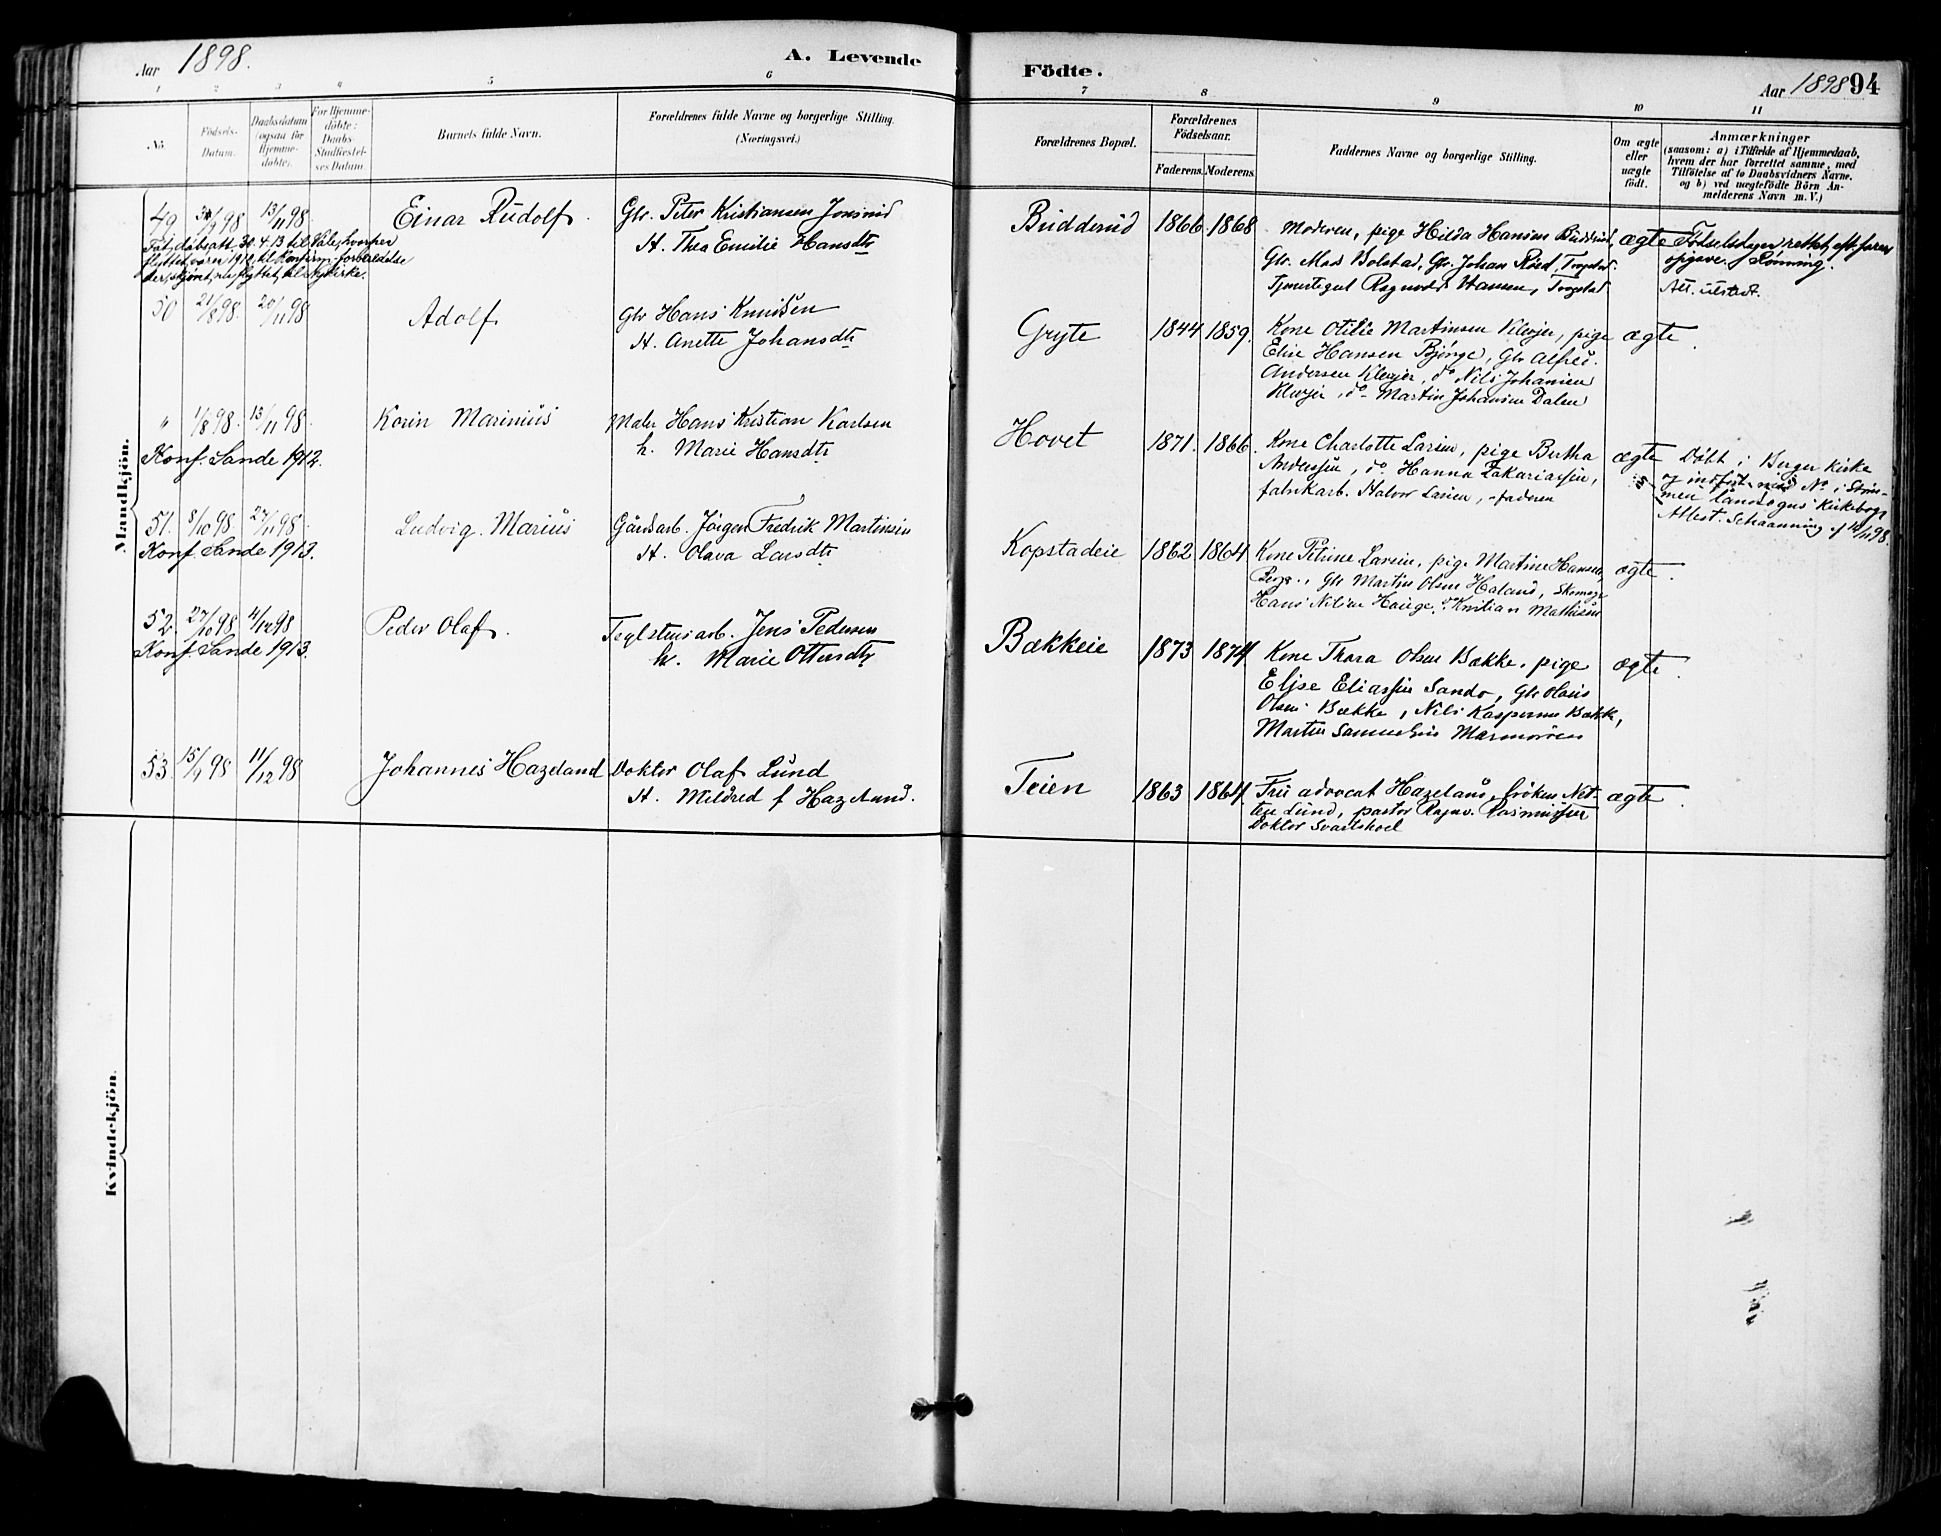 Aar 1898.
A. Levende
Födte.
Aar 1898 94
1 2 3 4 5 6 7 8 9 10 11
No.
Födsels-
Datum.
Daabsdatum
(ogsaa for
Hjemme-
döbte).
For Hjemme-
döbte:
Daabs
Stadfæstel-
ses Datum
Barnets fulde Navn.
Forældrenes fulde Navne og borgerlige Stilling.
(Næringsvei.)
Forældrenes Bopæl.
Forældrenes
Födselsaar.
Faderens. Moderens.
Faddernes Navne og borgerlige Stilling.
Om ægte
eller
uægte
födt.
Anmærkninger
(saasom: a) i Tilfælde af Hjemmedaab,
hvem der har forrettet samme, med
Tilföielse af to Daabsvidners Navne.
og b) ved uægtefödte Börn An-
melderens Navn m. V.)
Mandkjön.
49 /9 98 13/11 98 Einar Rudolf.
Gbr. Peter Kristiansen
H. Thea Emilie Hansdtr
Budderud 1866. 1868.
Moderen, pige Hilda Hansen Budderud,
Gbr. Mads Bolstad, Gbr. Johan Röed, Trogstad.
Tjenestegut Ragnvald Hansen, Trogstad
ægte
Födselsdagen rettet eft. farens
opgave. f Rönning.
Att. utstedt.
Fåt dåbsatt. 30.4.13 til Våle, hvorher
flyttet våren 1912, til konfirm. forberedelse
50 21/8 98. 20/11 98 Adolf
Gbr Hans Knudsen
H. Anette Johansdtr
Gryte 1844 1859.
Kone Otilie Martinsen Klevjer, pige
Elise Hansen Bjönge, Gbr Alfred
Andersen Klevjer, do Nils Johansen
Klevjer, do Martin Johansen Dalen
ægte.
" 1/8 98. 13/11 98. Korin Marinius
Maler Hans Kristian Karlsen
h. Marie Hansdtr
Hovet 1871. 1866.
Kone Charlotte Larsen, pige Bertha
Anderssen, do. Hanna Zakariassen,
fabrikarb. Halvor Larsen, faderen
ægte
Döbt i Berger Kirke
og indfört med No. i Ström-
men landsogns Kirkebog
Attest. Schaanning 98.
Konf. Sande 1912.
51. 8/10 98. 27/11 98. Ludvig Marius
Gårdsarb. Jörgen Fredrik Martinsen
H. Olava Larsdtr
Kopstadeie 1862 1864
Kone Petrine Larsen, pige Martine Hansen,
Berge, Gbr Martin Olsen Haland, Skomager
Hans Nilsen Hauge, Kristian Mathisen
ægte.
Konf. Sande 1913.
52. 27/10 98. 4/12 98 Peder Olaf.
Teglstensarb. Jens Pedersen
h. Marie Ottersdtr
Bækkeie 1873 1874
Kone Thora Olsen Bække, pige
Elise Eliassen Sando, Gbr Olaus
Olsen Bække, Nils Kaspersen Bække,
Martin Samuelsen
ægte.
Konf. Sande 1913.
53. 15/9 98 11/12 98 Johannes Hazeland
Doktor Olaf Lund
H. Mildred f Hazeland.
Teien 1863 1864
Fru advocat Hazeland, fröken Net-
ten Lund, pastor Ragnv. Rasmussen
Doktor Svartshoel
ægte.
Kvindekjön.